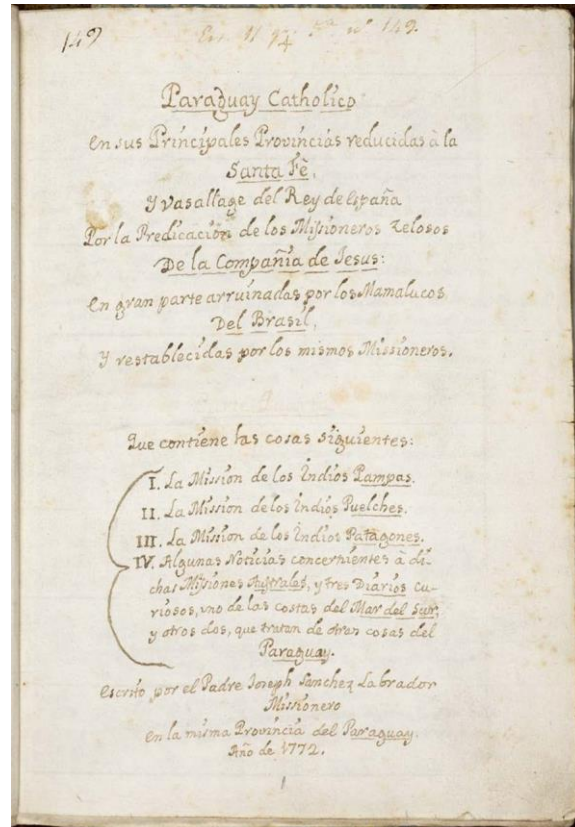 149
149.
Paraguay Catholico
en sus Principales Provincias reducidas à la
Santa Fè,
y Vasallage del Rey de España
Por la Predicación de los Missioneros Zelosos
De la Compañia de Jesus:
en gran parte arruinadas por los Mamalucos
Del Brasil,
y restablecidas por los mismos Missioneros.
Que contiene las cosas siguientes:
I. La Mission de los Indios Pampas.
II. La Mission de los Indios Puelches.
III. La Mission de los Indios Patagones.
IV. Algunas Noticias concernientes à di-
chas Missiones Australes, y tres Diarios cu-
riosos, uno de las costas del Mar del Sur;
y otros dos, que tratan de otras cosas del
Paraguay.
Escrito por el Padre Joseph Sanchez Labrador
Missionero
en la misma Provincia del Paraguay.
Año de 1772.
1